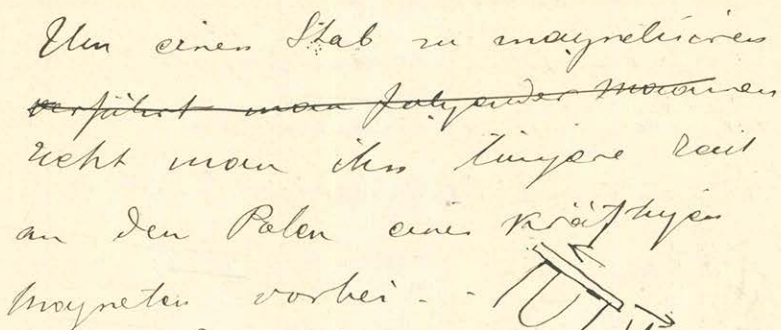 Um einen Stab zu magnetisieren
verfährt man folgender Maassen
zieht man ihn längere Zeit
an den Polen eines kräftigen
Magneten vorbei. - -